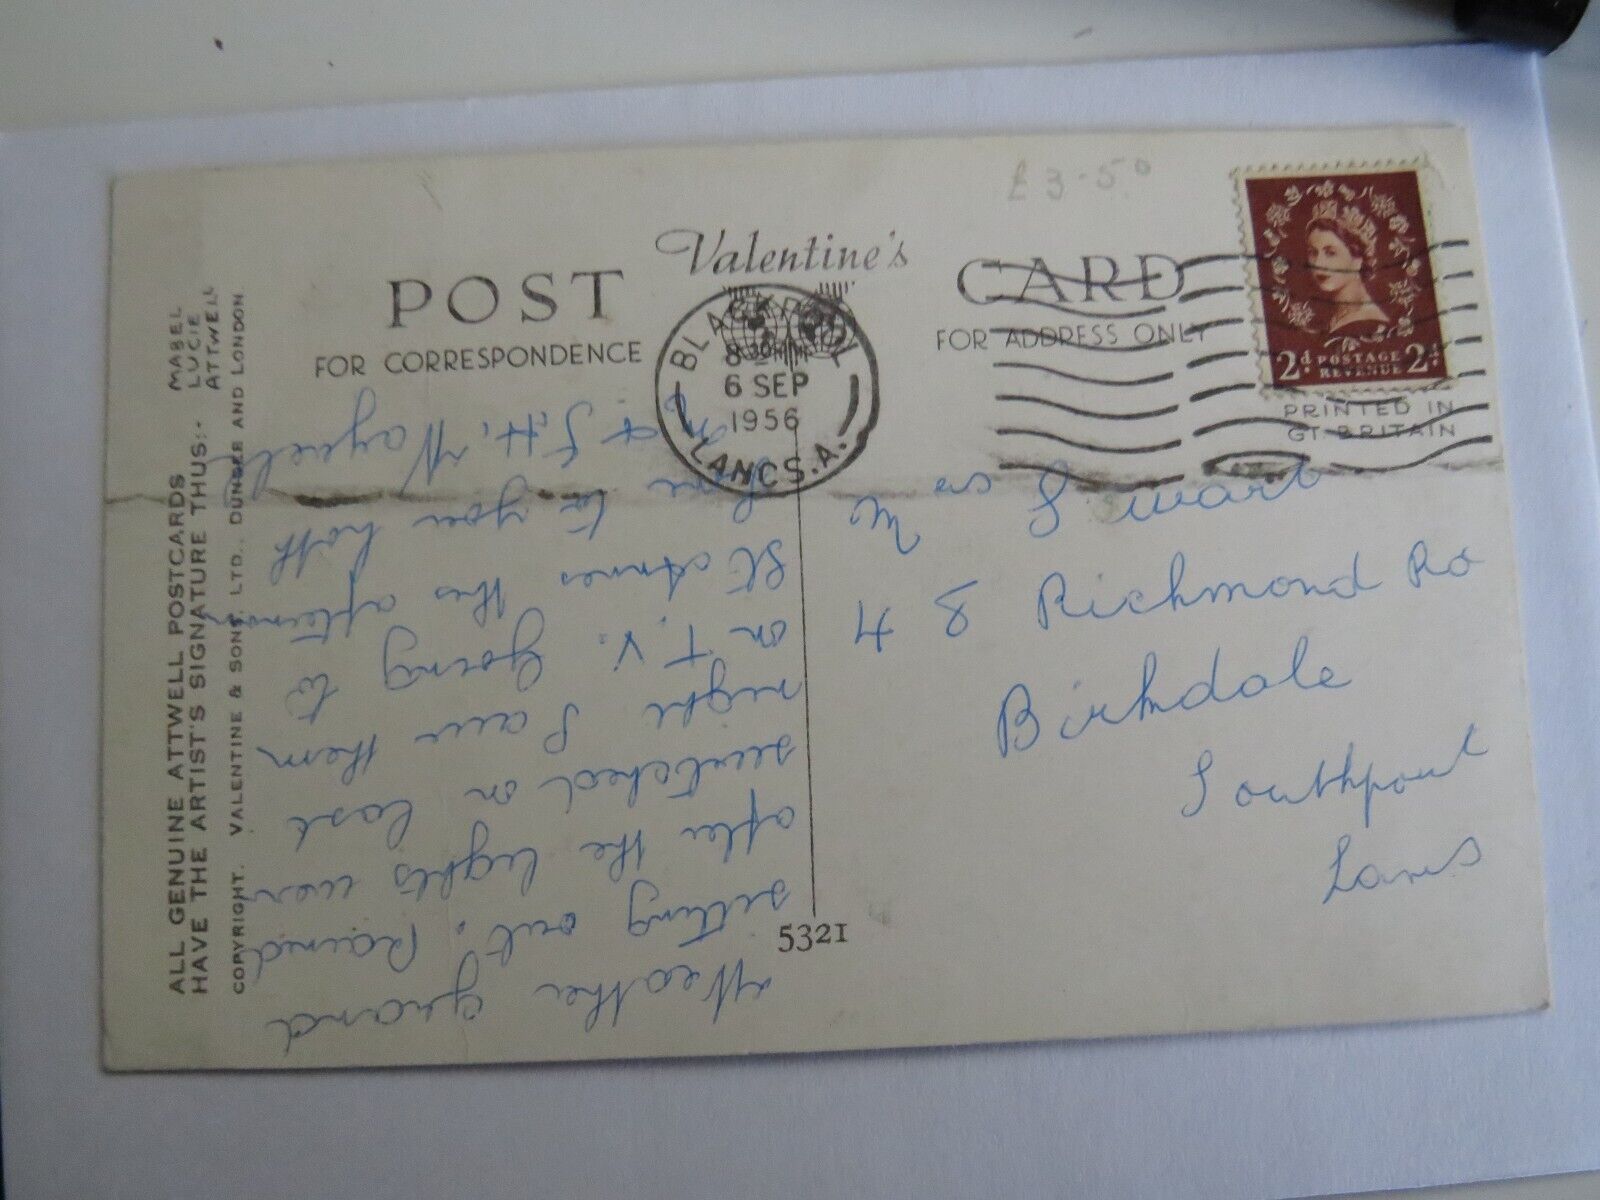 £3-50
Valentine's
POST CARD
FOR CORRESPONDENCE
FOR ADDRESS ONLY
BLACKPOOL
8 30
6 SEP
1956
LANCS. A.
2d POSTAGE REVENUE 2d
PRINTED IN
GT. BRITAIN
ALL GENUINE ATTWELL POSTCARDS
HAVE THE ARTIST'S SIGNATURE THUS:-
MABEL
LUCIE
ATTWELL
COPYRIGHT. VALENTINE & SONS, LTD., DUNDEE AND LONDON.
5321
Weather grand
setting out. Raind
after the lights wer
switched on last
night Saw them
on T.V. Going to
St Annes this afternoon
Love to you both
F.H.
Mrs
48 Richmond Rd
Birkdale
Southport
Lancs